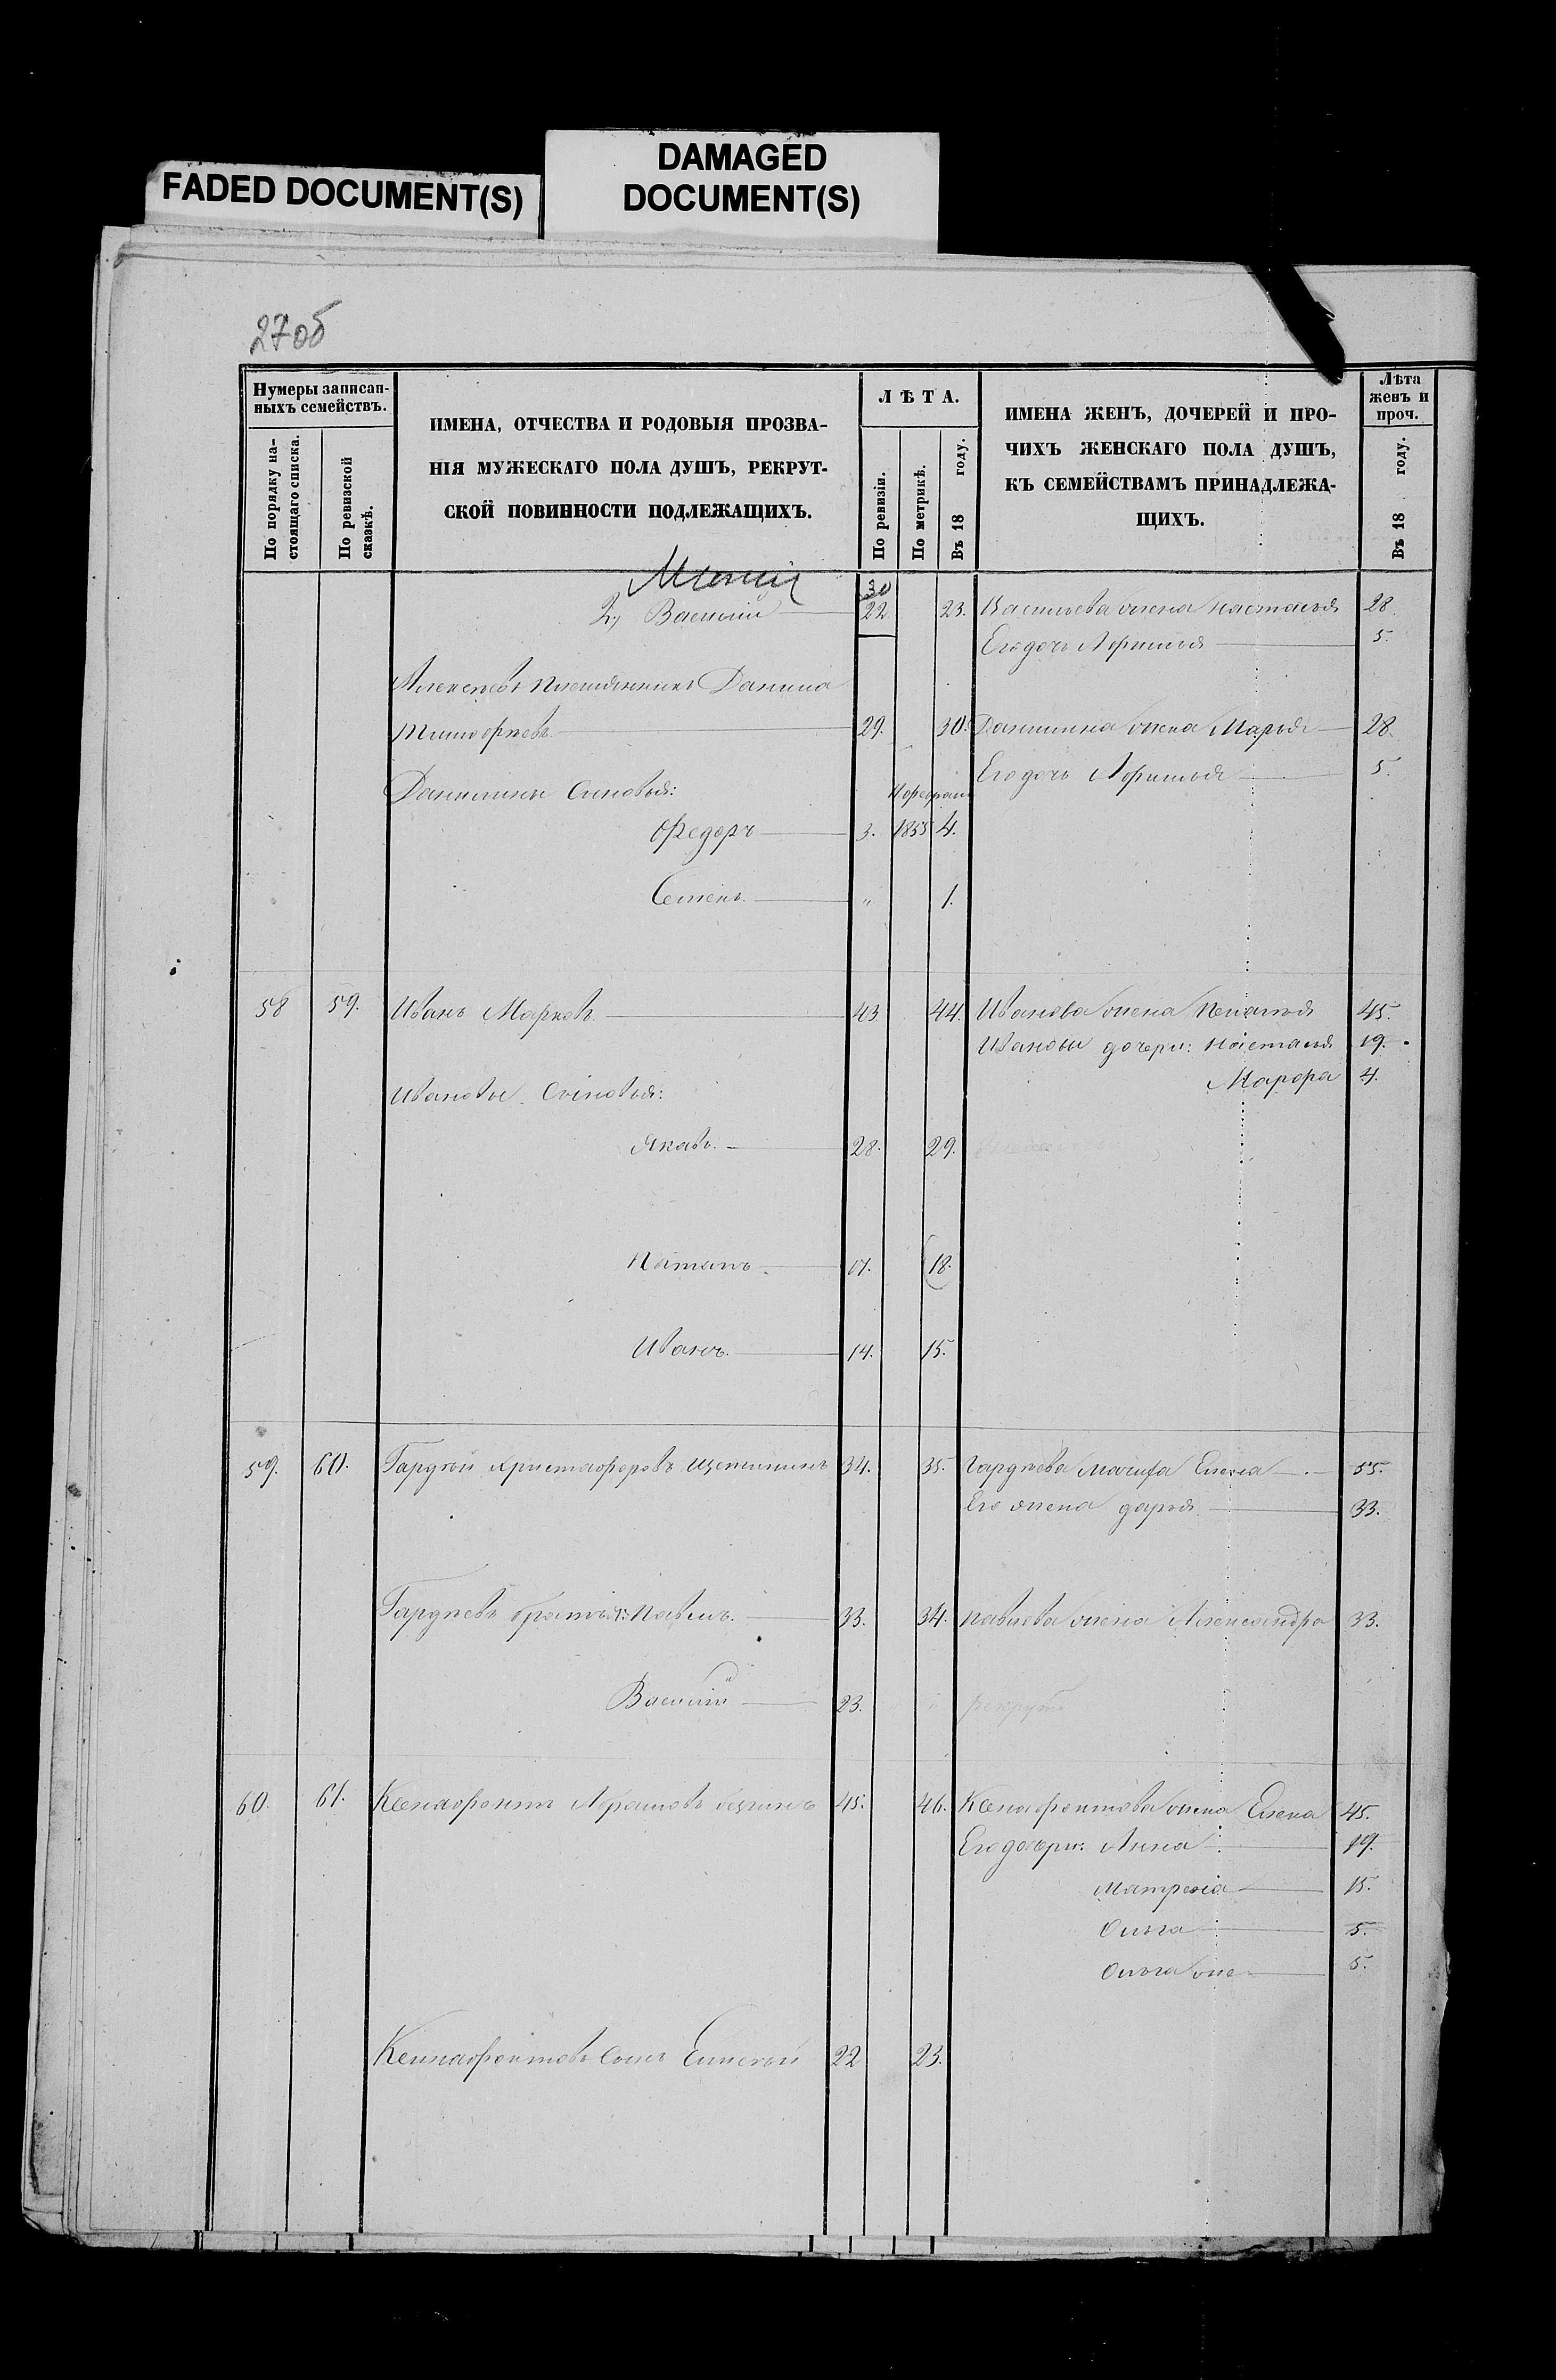 FADED DOCUMENT(S)
DAMAGED
DOCUMENT(S)
27об
Нумеры записан-
ныхъ семействъ.
По порядку на-
стоящаго списка.
По ревизской
сказкѣ.
ИМЕНА, ОТЧЕСТВА И РОДОВЫЯ ПРОЗВА-
НІЯ МУЖЕСКАГО ПОЛА ДУШЪ, РЕКРУТ-
СКОЙ ПОВИННОСТИ ПОДЛЕЖАЩИХЪ.
ЛѢТА.
По ревизіи.
По метрикѣ.
Въ 18 году.
ИМЕНА ЖЕНЪ, ДОЧЕРЕЙ И ПРО-
ЧИХЪ ЖЕНСКАГО ПОЛА ДУШЪ,
КЪ СЕМЕЙСТВАМЪ ПРИНАДЛЕЖА-
ЩИХЪ.
Лѣта
женъ и
проч.
Въ 18 году.
30
2, Василій 22 23. Васильева жена настасья 28.
Его дочь Афимья 5.
Алексѣевъ племянникъ Данила
Тимофѣевъ 29. 30. Данилина жена Марья 28.
Его дочь Афимья 5.
Данилины Сыновья:
Федоръ 3. 1855 4.
Семенъ " 1.
58 59. Иванъ Марковъ 43 44. Иванова жена Пелагья 45.
Ивановы дочери: настасья 19.
Марфа 4.
Ивановы Сыновья:
Яковъ. 28. 29.
Потапъ 17. 18.
Иванъ. 14. 15.
59. 60. Гардѣй Христофоровъ 34. 35. Гардѣева мачиха Елена 55.
Его жена дарья 33.
Гардѣевы братья: Павелъ. 33. 34. павлова жена Александра 33.
Василій 23. " рекрутъ
60. 61. Ксенофонтъ 45. 46. Ксенофонтова жена Елена 45.
Его дочери: Анна 19.
Матрена 15.
Ольга 5.
Ольга же 5.
Ксенофонтовъ Сынъ Елисей 22 23.